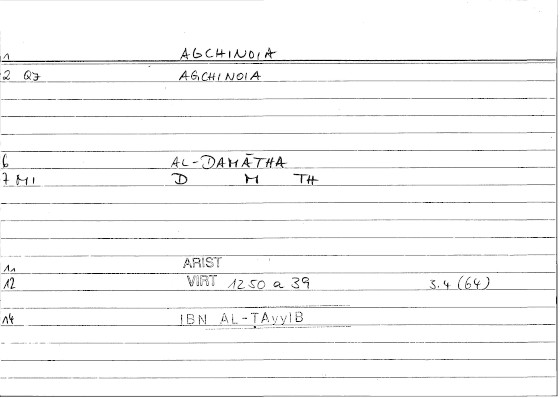 1 AGCHINOIA
2 Q7 AGCHINOIA
6 AL-DAMĀTHA
7 MI D M TH
11 ARIST
12 VIRT 1250 a 39 3.4 (64)
14 IBN AL-ṬAyyIB